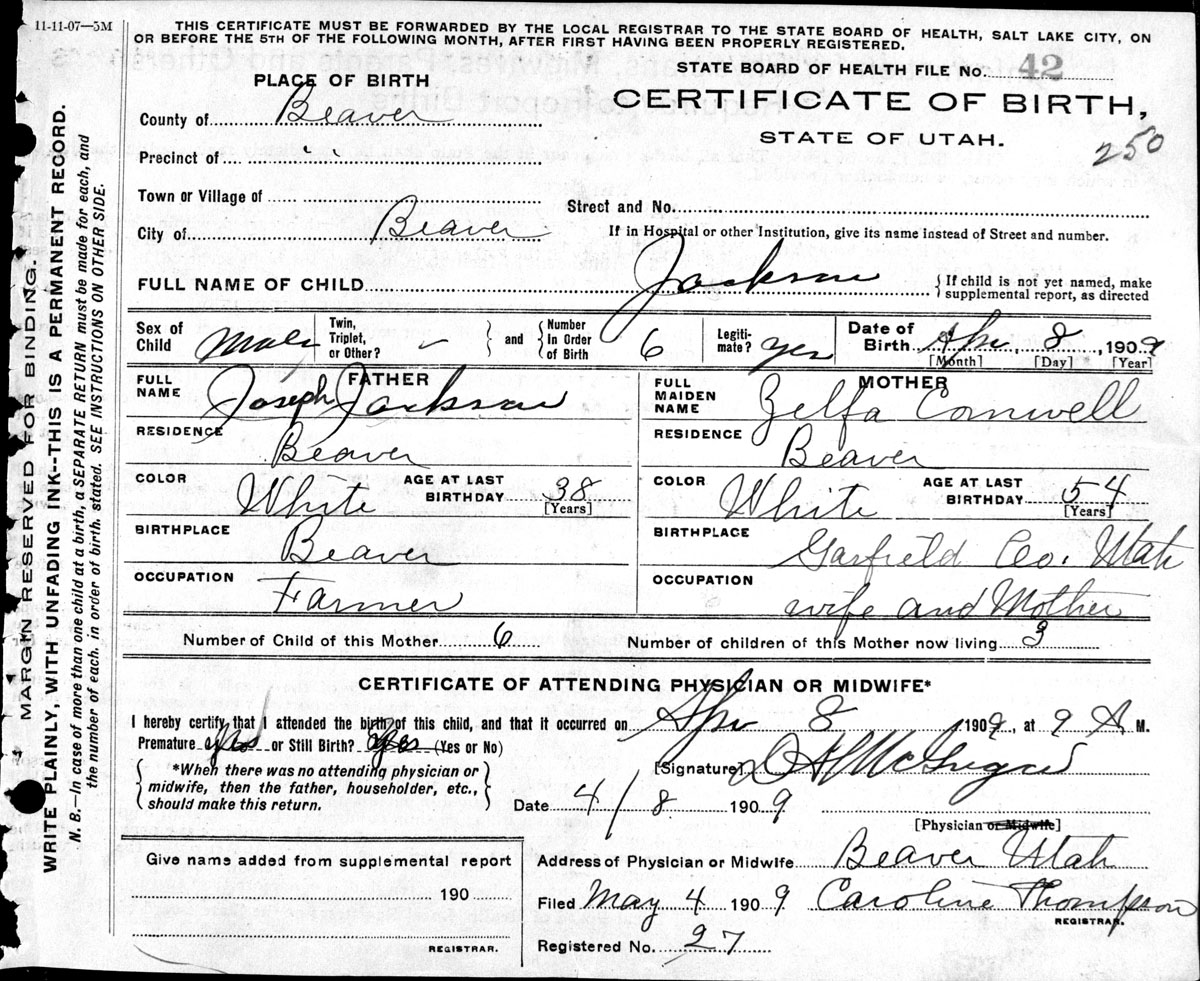 11-11-07—5M
THIS CERTIFICATE MUST BE FORWARDED BY THE LOCAL REGISTRAR TO THE STATE BOARD OF HEALTH, SALT LAKE CITY, ON
OR BEFORE THE 5TH OF THE FOLLOWING MONTH, AFTER FIRST HAVING BEEN PROPERLY REGISTERED.
STATE BOARD OF HEALTH FILE No. 42
PLACE OF BIRTH
CERTIFICATE OF BIRTH,
STATE OF UTAH.
250
County of Beaver
Precinct of " "
Town or Village of
Street and No.
City of Beaver
If in Hospital or other Institution, give its name instead of Street and number.
FULL NAME OF CHILD Jackson
{ If child is not yet named, make
supplemental report, as directed
Sex of Child Male
Twin, Triplet, or Other? - } and { Number In Order of Birth 6
Legitimate? yes
Date of Birth Apr, 8, 1909
[Month] [Day] [Year]
FATHER
FULL NAME Joseph Jackson
RESIDENCE Beaver
COLOR White AGE AT LAST BIRTHDAY 38 [Years]
BIRTHPLACE Beaver
OCCUPATION Farmer
MOTHER
FULL MAIDEN NAME Zelfa Cornwell
RESIDENCE Beaver
COLOR White AGE AT LAST BIRTHDAY 54 [Years]
BIRTHPLACE Garfield Co. Utah
OCCUPATION wife and Mother
Number of Child of this Mother 6 Number of children of this Mother now living 3
CERTIFICATE OF ATTENDING PHYSICIAN OR MIDWIFE*
I hereby certify that I attended the birth of this child, and that it occurred on Apr 8, 1909, at 9 A. M.
Premature or Still Birth? (Yes or No)
{ *When there was no attending physician or
midwife, then the father, householder, etc.,
should make this return. }
[Signature] McGregor
Date 4/8 1909
[Physician or Midwife]
Give name added from supplemental report
190
REGISTRAR.
Address of Physician or Midwife Beaver Utah
Filed May 4 1909 Caroline Thompson
REGISTRAR.
Registered No. 27
MARGIN RESERVED FOR BINDING.
WRITE PLAINLY, WITH UNFADING INK--THIS IS A PERMANENT RECORD.
N. B.—In case of more than one child at a birth, a SEPARATE RETURN must be made for each, and
the number of each, in order of birth, stated. SEE INSTRUCTIONS ON OTHER SIDE.